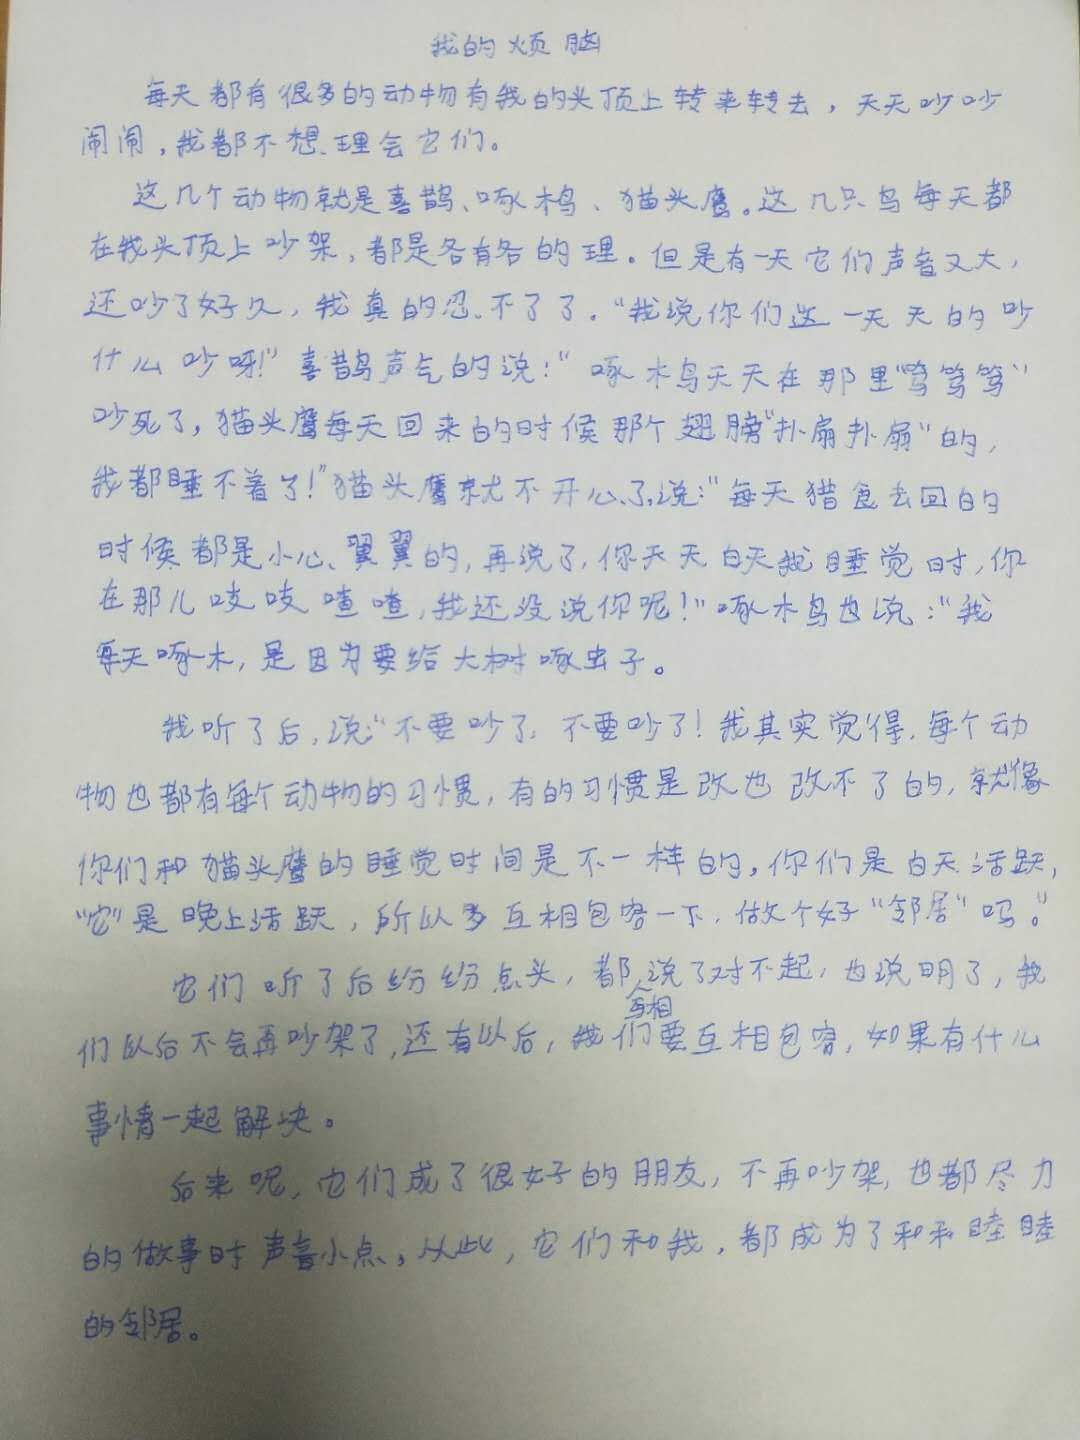 我的烦脑
每天都有很多的动物有我的头顶上转来转去，天天吵吵
闹闹，我都不想理会它们。
这几个动物就是喜鹊、啄木鸟、猫头鹰。这几只鸟每天都
在我头顶上吵架，都是各有各的理。但是有一天它们声音又大，
还吵了好久，我真的忍不了了。“我说你们这一天天的吵
什么吵呀！”喜鹊声气的说：“啄木鸟天天在那里“笃笃笃”
吵死了，猫头鹰每天回来的时候那个翅膀“扑扇扑扇”的，
我都睡不着了！”猫头鹰就不开心了，说：“每天猎食去回的
时候都是小心翼翼的，再说了，你天天白天我睡觉时，你
在那儿吱吱喳喳，我还没说你呢！”啄木鸟也说：“我
每天啄木，是因为要给大树啄虫子。
我听了后，说：“不要吵了，不要吵了！我其实觉得，每个动
物也都有每个动物的习惯，有的习惯是改也改不了的，就像
你们和猫头鹰的睡觉时间是不一样的，你们是白天活跃，
“它”是晚上活跃，所以多互相包容一下，做个好“邻居”吗。”
它们听了后纷纷点头，都互相说了对不起，也说明了，我
们以后不会再吵架了，还有以后，我们要互相包容，如果有什么
事情一起解决。
后来呢，它们成了很好的朋友，不再吵架，也都尽力
的做事时声音小点。从此，它们和我，都成为了和和睦睦
的邻居。